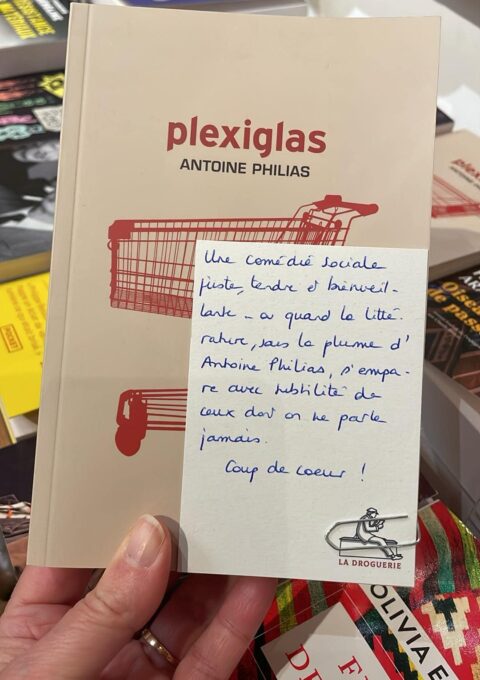 plexiglas
ANTOINE PHILIAS
Une comédie sociale
juste, tendre et bienveil-
lante - ou quand la litté-
rature, sous la plume d'
Antoine Philias, s'empa-
re avec subtilité de
ceux dont on ne parle
jamais.
Coup de coeur !
LA DROGUERIE
plexiglas
OLIVIA E